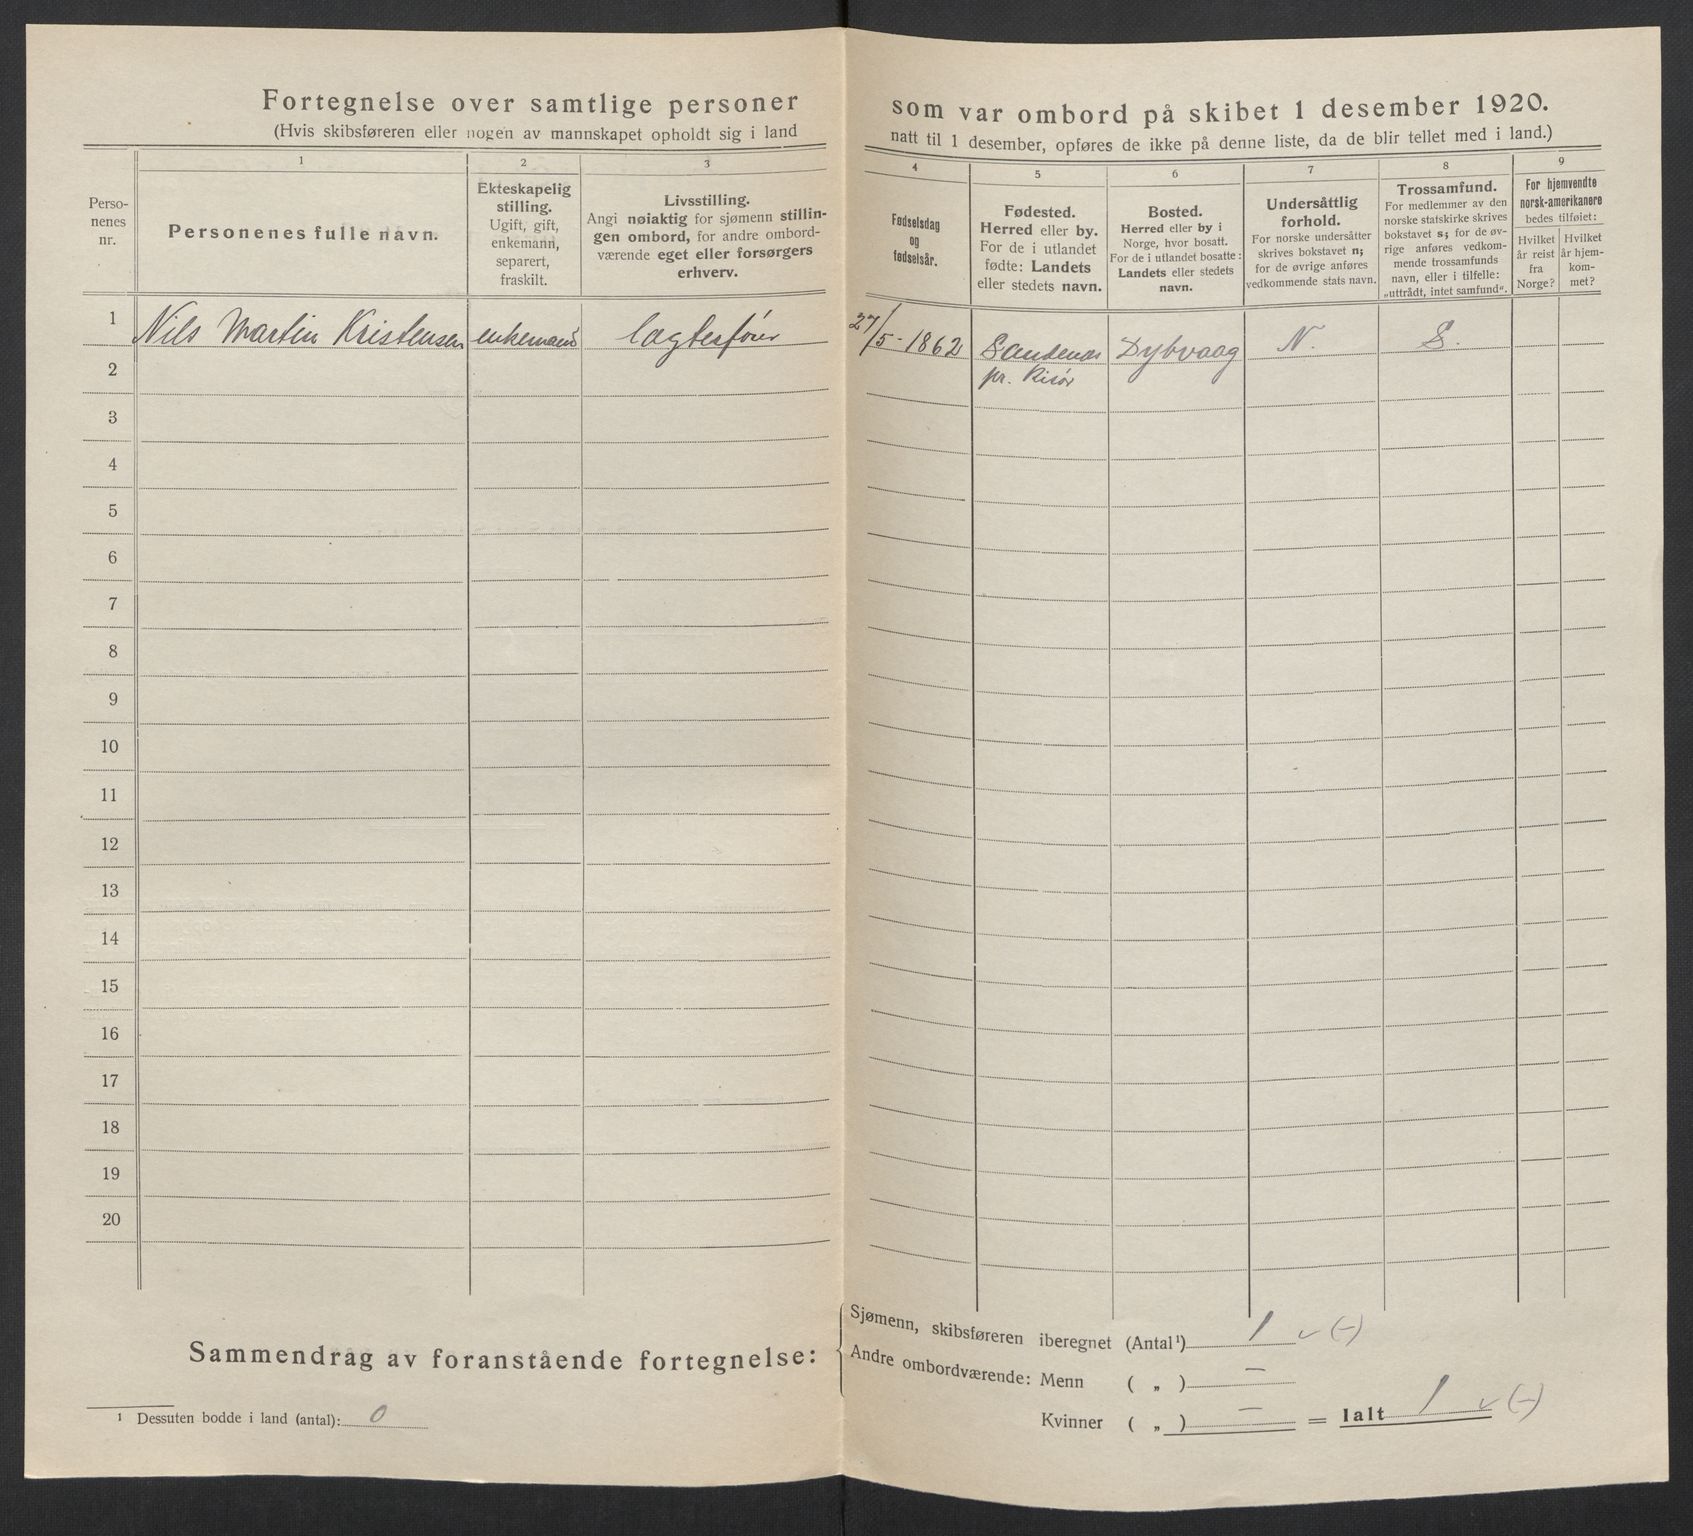 Fortegnelse over samtlige personer som var ombord på skibet 1 desember 1920.
(Hvis skibsføreren eller nogen av mannskapet opholdt sig i land natt til 1 desember, opføres de ikke på denne liste, da de blir tellet med i land.)
Perso-
nenes
nr.
1
Personenes fulle navn.
2
Ekteskapelig
stilling.
Ugift, gift,
enkemann,
separert,
fraskilt.
3
Livsstilling.
Angi nøiaktig for sjømenn stillin-
gen ombord, for andre ombord-
værende eget eller forsørgers
erhverv.
4
Fødselsdag
og
fødselsår.
5
Fødested.
Herred eller by.
For de i utlandet
fødte: Landets
eller stedets navn.
6
Bosted.
Herred eller by i
Norge, hvor bosatt.
For de i utlandet bosatte:
Landets eller stedets
navn.
7
Undersåttlig
forhold.
For norske undersåtter
skrives bokstavet n;
for de øvrige anføres
vedkommende stats navn.
8
Trossamfund.
For medlemmer av den
norske statskirke skrives
bokstavet s; for de øv-
rige anføres vedkom-
mende trossamfunds
navn, eller i tilfelle:
„uttrådt, intet samfund“.
9
For hjemvendte
norsk-amerikanere
bedes tilføiet:
Hvilket
år reist
fra
Norge?
Hvilket
år hjem-
kom-
met?
1 Nils Martin Kristensen enkemand lægterfører 27/5-1862 Sandenæs Dybvaag N. S.
pr. Risør
2
3
4
5
6
7
8
9
10
11
12
13
14
15
16
17
18
19
20
Sammendrag av foranstående fortegnelse:
Sjømenn, skibsføreren iberegnet (Antal¹) 1 v (-)
Andre ombordværende: Menn ( „ ) —
Kvinner ( „ ) — = Ialt 1 v (-)
¹ Dessuten bodde i land (antal): 0